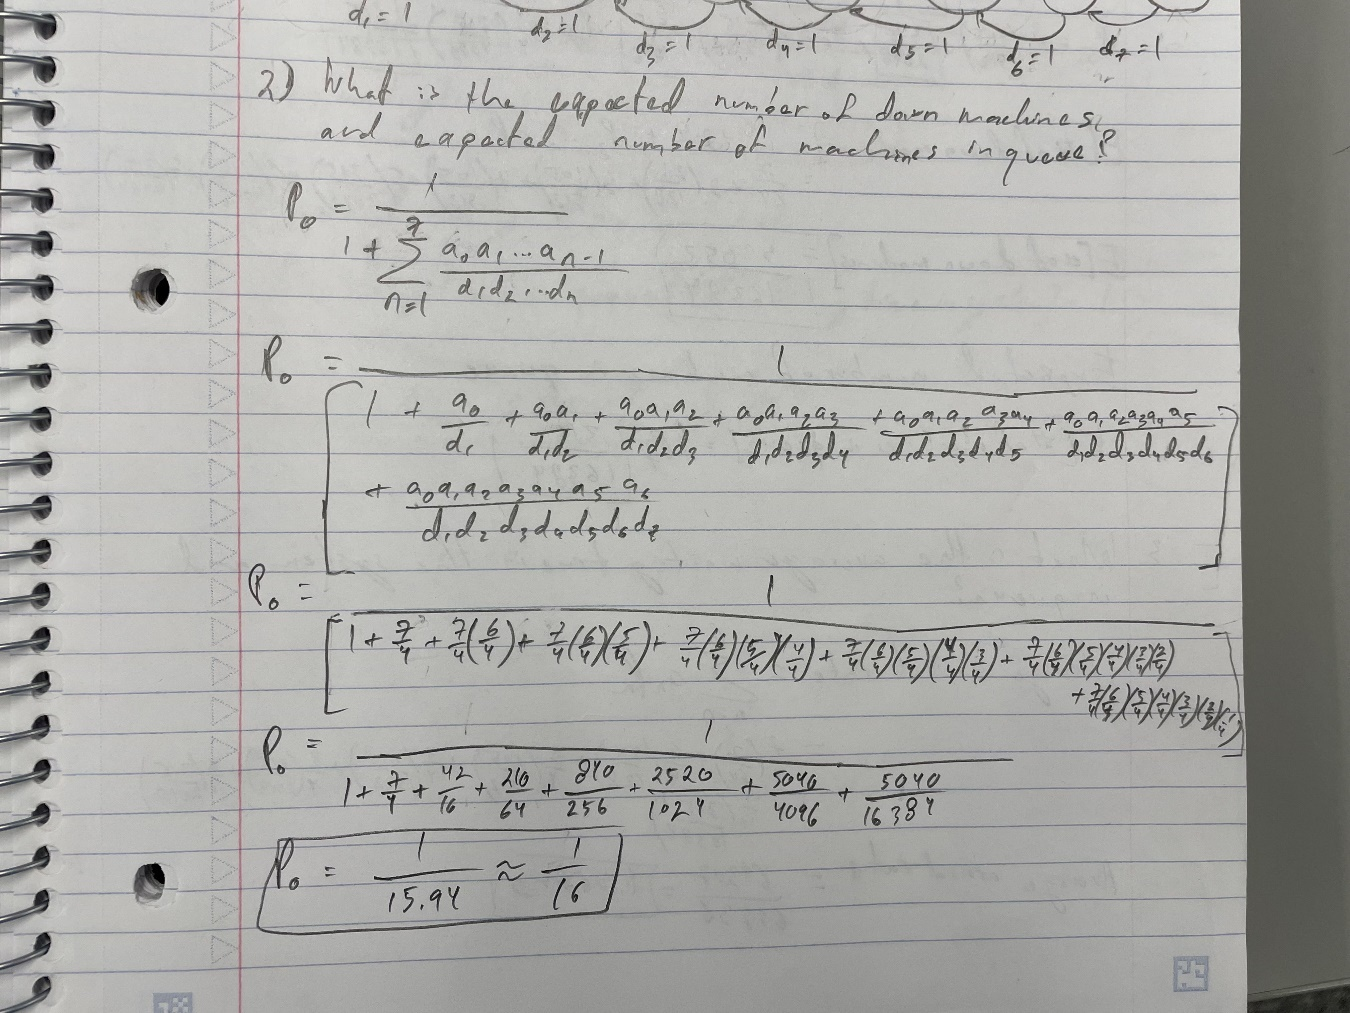 d₁ = 1 d₂ = 1 d₃ = 1 d₄ = 1 d₅ = 1 d₆ = 1 d₇ = 1
2) What is the expected number of down machines,
and expected number of machines in queue?
P₀ = 1 / (1 + Σ_{n=1}^{7} (a₀a₁...a_{n-1})/(d₁d₂...d_n))
P₀ = 1 /
[1 + a₀/d₁ + a₀a₁/d₁d₂ + a₀a₁a₂/d₁d₂d₃ + a₀a₁a₂a₃/d₁d₂d₃d₄ + a₀a₁a₂a₃a₄/d₁d₂d₃d₄d₅ + a₀a₁a₂a₃a₄a₅/d₁d₂d₃d₄d₅d₆
+ a₀a₁a₂a₃a₄a₅a₆/d₁d₂d₃d₄d₅d₆d₇]
P₀ = 1 /
[1 + 7/4 + 7/4(6/4) + 7/4(6/4)(5/4) + 7/4(6/4)(5/4)(4/4) + 7/4(6/4)(5/4)(4/4)(3/4) + 7/4(6/4)(5/4)(4/4)(3/4)(2/4)
+ 7/4(6/4)(5/4)(4/4)(3/4)(2/4)(1/4)]
P₀ = 1 /
1 + 7/4 + 42/16 + 210/64 + 840/256 + 2520/1024 + 5040/4096 + 5040/16384
P₀ = 1/15.94 ≈ 1/16